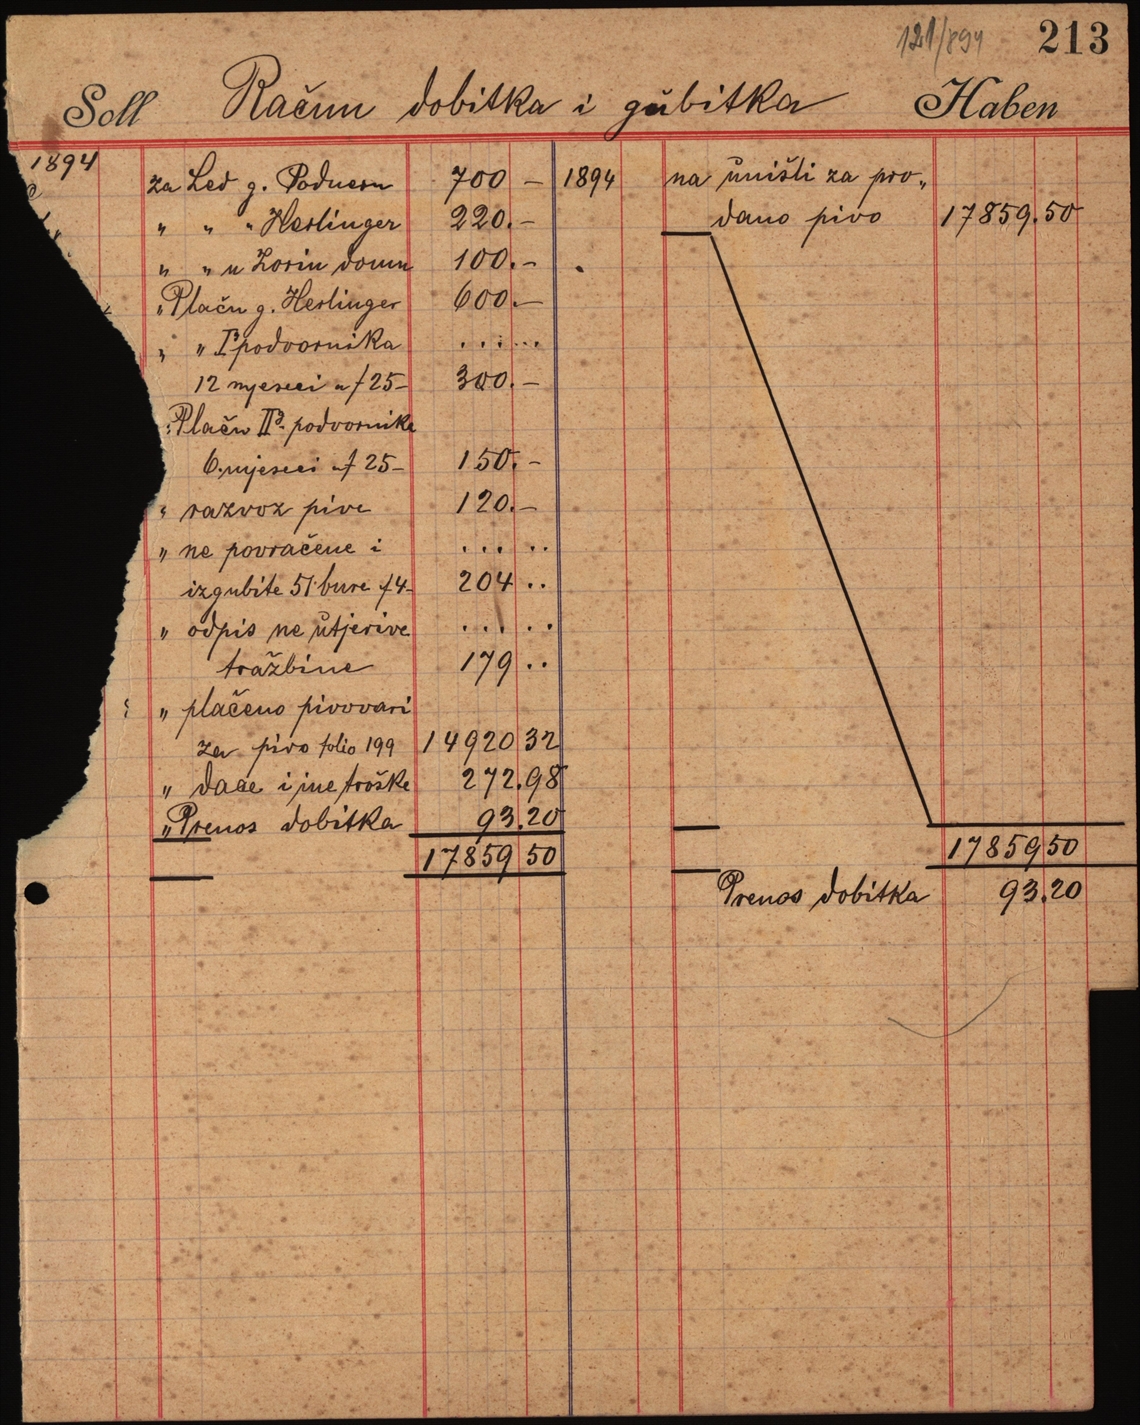 121/894 213
Soll Račun dobitka i gubitka Haben
1894
za Led g. Poduesu 700 –
" " " Herlinger 220.–
" " u Zorin domu 100.–
" Plaću g. Herlinger 600.–
" " I podvornika .....
12 mjeseci a f 25– 300.–
" Plaču II podvornika
6 mjeseci a f 25– 150.–
" razvoz pive 120.–
" ne povraćene i ... ..
izgubite 51 bure f 4– 204 ..
" odpis ne utjerive ... ..
tražbine 179 ..
" plaćeno pivovari
za pivo folio 199 14920 32
" daće i ine troške 272.98
" Prenos dobitka 93.20
17859 50
1894 na unišli za pro„
dano pivo 17859.50
17859 50
Prenos dobitka 93.20